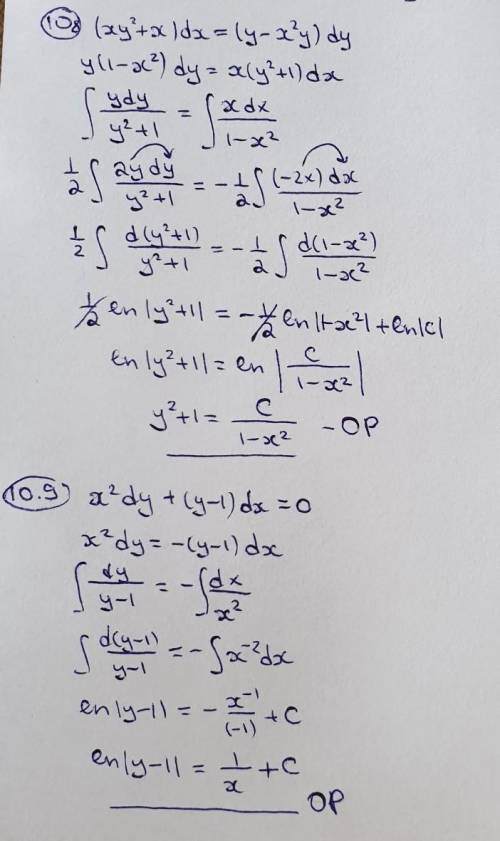 10.8 (xy²+x)dx=(y-x²y)dy
y(1-x²)dy=x(y²+1)dx
∫ ydy/y²+1 = ∫ xdx/1-x²
1/2 ∫ 2ydy/y²+1 = -1/2 ∫ (-2x)dx/1-x²
1/2 ∫ d(y²+1)/y²+1 = -1/2 ∫ d(1-x²)/1-x²
1/2 ln|y²+1| = -1/2 ln|1-x²| + ln|c|
ln|y²+1| = ln|C/1-x²|
y²+1 = C/1-x² - OP
10.9) x²dy+(y-1)dx=0
x²dy=-(y-1)dx
∫ dy/y-1 = -∫ dx/x²
∫ d(y-1)/y-1 = -∫ x⁻²dx
ln|y-1| = - x⁻¹/(-1) + C
ln|y-1| = 1/x + C
OP